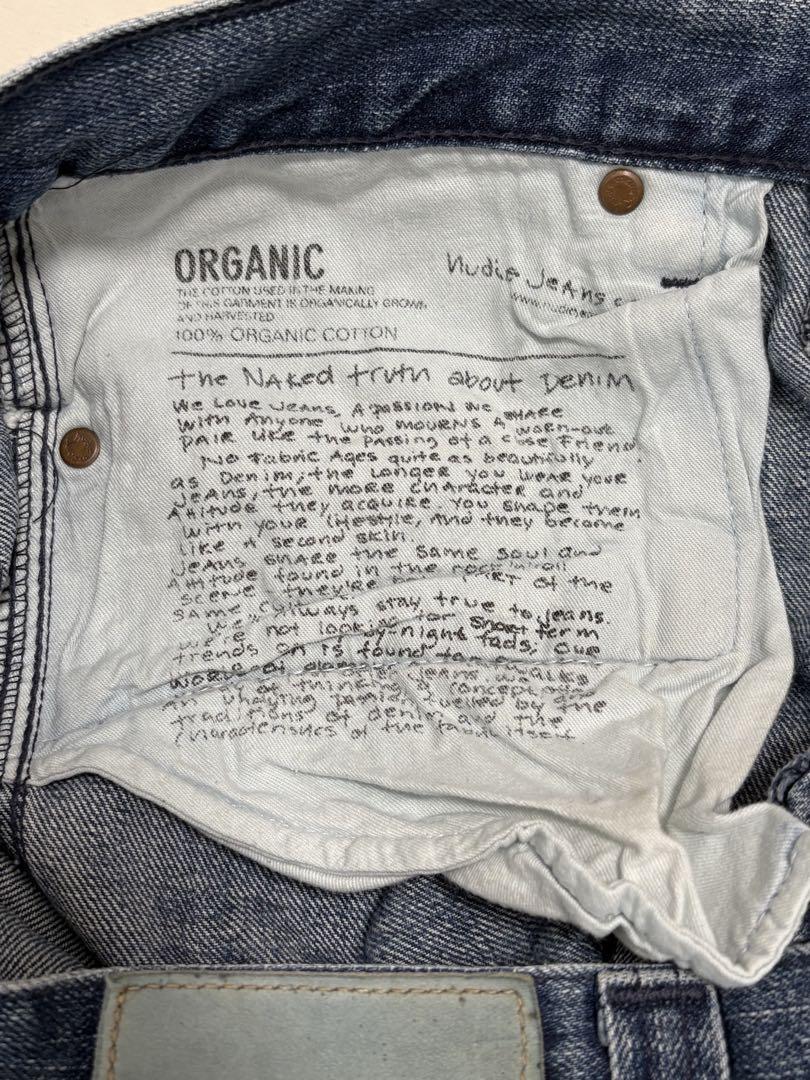 ORGANIC
THE COTTON USED IN THE MAKING
OF THIS GARMENT IS ORGANICALLY GROWN
AND HARVESTED
100% ORGANIC COTTON
Nudie Jeans
www.nudieje
the NAked truth about Denim
We Love Jeans, A passion we share
with Anyone who mourns A worn-out
pair like the passing of a close friend.
No fabric Ages quite as beautifully
as Denim, the longer you wear your
Jeans, the more character and
Attitude they acquire. You shape them
with your lifestyle, And they become
like A second skin.
Jeans share the same soul and
Attitude found in the rock'n'roll
scene they're part of the
same always stay true to jeans.
We're not looking for short term
trends or night fads, our
world of
of thinking a concept
An undying passion fuelled by the
traditions of denim and the
characteristics of the fabric itself